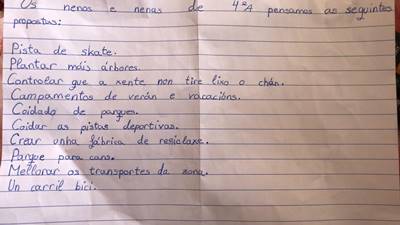 Os nenos e nenas de 4ºA pensamos as seguintes
propostas:
Pista de skate.
Plantar máis árbores.
Controlar que a xente non tire lixo o chán.
Campamentos de verán e vacacións.
Coidado de parques.
Coidar as pistas deportivas.
Crear unha fábrica de resiclaxe.
Parque para cans.
Mellorar os transportes da zona.
Un carril bici.